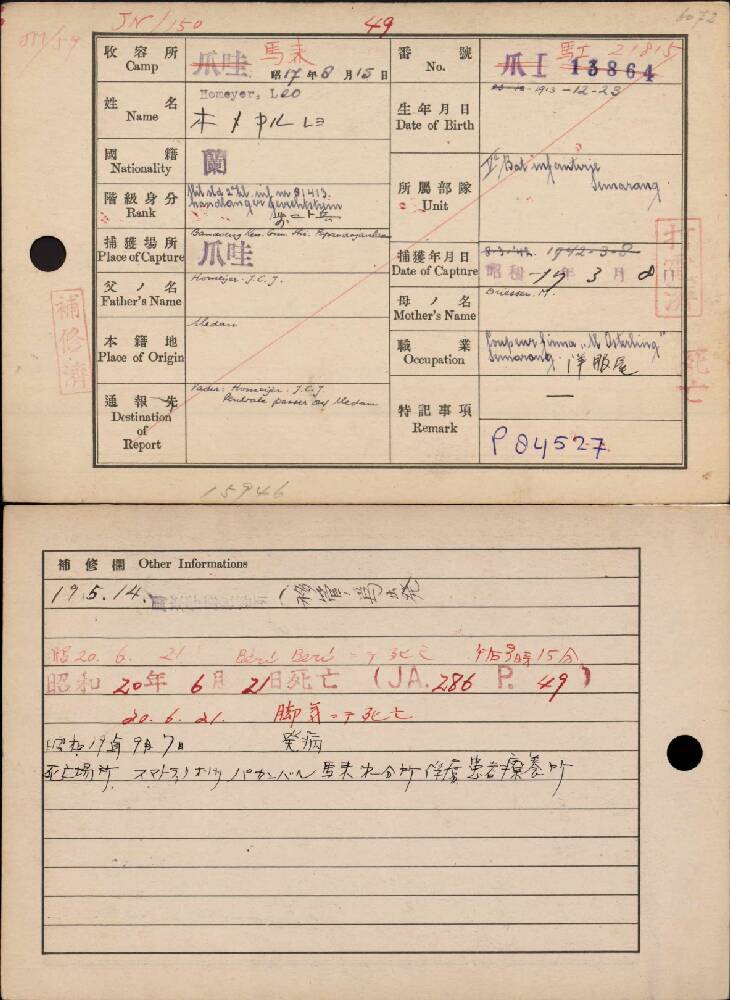 JN/150
49
6072
收容所
Camp
爪哇 馬来
昭17年8月15日
番號
No.
爪I 13864
馬I 21815
姓名
Name
Homeyer, Leo
ホメヤル レヨ
生年月日
Date of Birth
1913-12-23
國籍
Nationality
蘭
階級身分
Rank
所屬部隊
Unit
IIe Bat infanterie
Semarang
捕獲場所
Place of Capture
爪哇
捕獲年月日
Date of Capture
8-3-'42. 1942-3-8
昭和17年3月8
父ノ名
Father's Name
Homeijer. J.C.J.
母ノ名
Mother's Name
Driessen. M.
本籍地
Place of Origin
Medan
職業
Occupation
Coupeur firma „M. Osterling"
Semarang. 洋服屋
通報先
Destination
of
Report
Vader: Homeijer. J.C.J.
Medan
特記事項
Remark
—
P 84527
補修濟
死亡
15946
補修欄 Other Informations
19.5.14.
昭20. 6. 21 Beri Beri ニテ死亡 15分
昭和20年6月21日死亡 (JA.286 P. 49)
20.6.21. 脚気ニテ死亡
昭和19年9月7日 発病
死亡場所 スマトラ パカンバル 馬来 分所 患者療養所